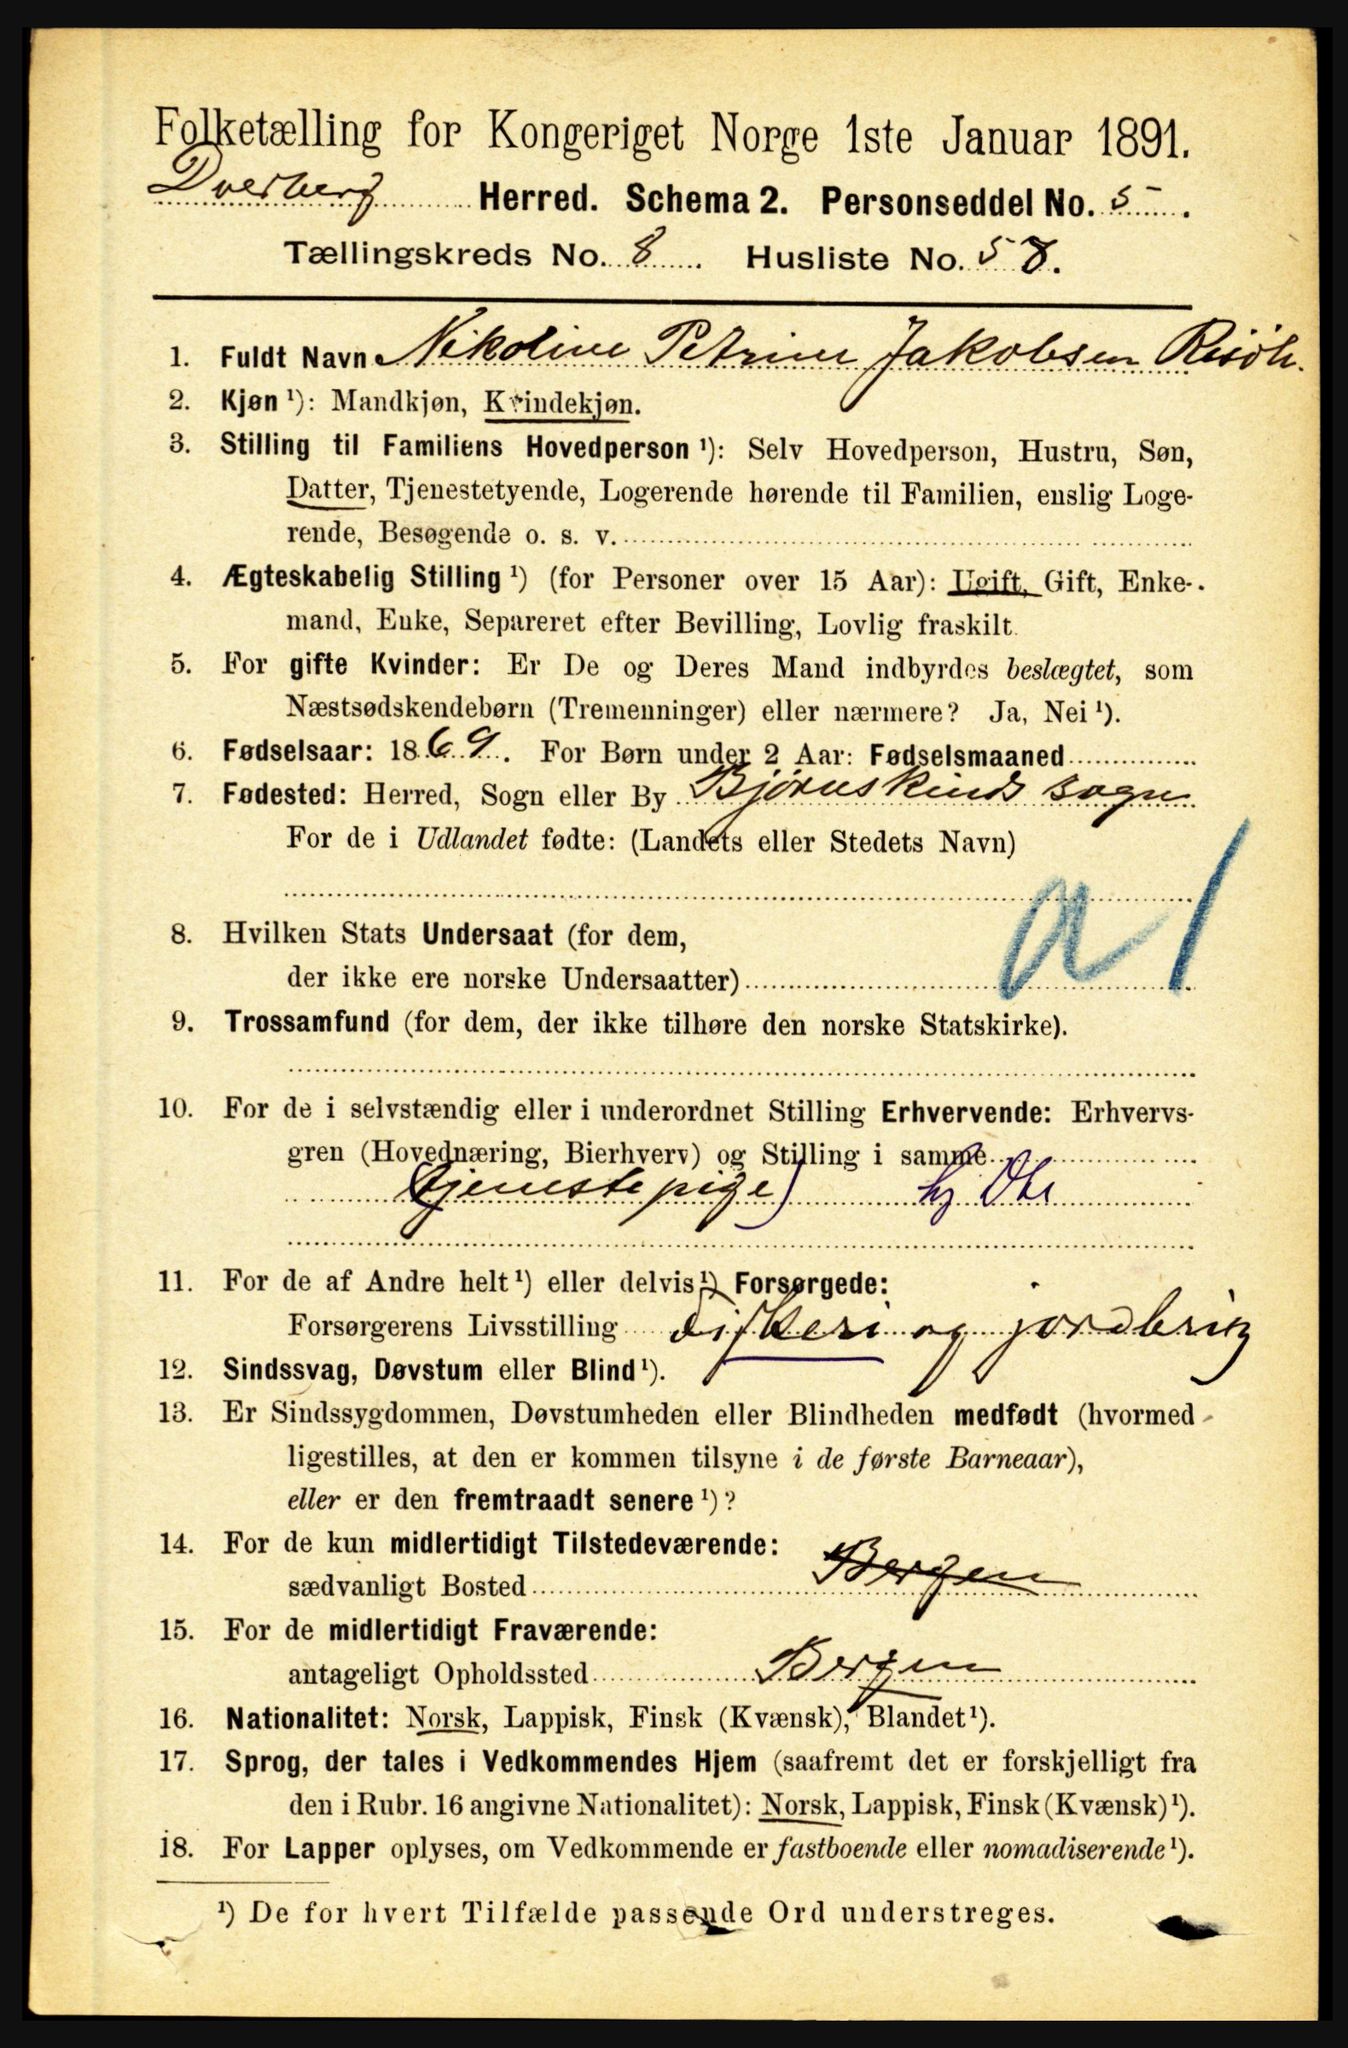 Folketælling for Kongeriget Norge 1ste Januar 1891.
Dverberg Herred. Schema 2. Personseddel No. 5.
Tællingskreds No. 8 Husliste No. 58.
1. Fuldt Navn Nikoline Petrine Jakobsen Risøh.
2. Kjøn ¹): Mandkjøn, Kvindekjøn.
3. Stilling til Familiens Hovedperson ¹): Selv Hovedperson, Hustru, Søn,
Datter, Tjenestetyende, Logerende hørende til Familien, enslig Loge-
rende, Besøgende o. s. v.
4. Ægteskabelig Stilling ¹) (for Personer over 15 Aar): Ugift, Gift, Enke-
mand, Enke, Separeret efter Bevilling, Lovlig fraskilt.
5. For gifte Kvinder: Er De og Deres Mand indbyrdes beslægtet, som
Næstsødskendebørn (Tremenninger) eller nærmere? Ja, Nei ¹).
6. Fødselsaar: 1869. For Børn under 2 Aar: Fødselsmaaned
7. Fødested: Herred, Sogn eller By Bjørnskinds sogn
For de i Udlandet fødte: (Landets eller Stedets Navn)
a 1
8. Hvilken Stats Undersaat (for dem,
der ikke ere norske Undersaatter)
9. Trossamfund (for dem, der ikke tilhøre den norske Statskirke).
10. For de i selvstændig eller i underordnet Stilling Erhvervende: Erhvervs-
gren (Hovednæring, Bierhverv) og Stilling i samme
(tjenestepige) hj Dtr
11. For de af Andre helt ¹) eller delvis ¹) Forsørgede:
Forsørgerens Livsstilling fiskeri og jordbrug
12. Sindssvag, Døvstum eller Blind ¹).
13. Er Sindssygdommen, Døvstumheden eller Blindheden medfødt (hvormed
ligestilles, at den er kommen tilsyne i de første Barneaar),
eller er den fremtraadt senere ¹)?
14. For de kun midlertidigt Tilstedeværende:
sædvanligt Bosted Bergen
15. For de midlertidigt Fraværende:
antageligt Opholdssted Bergen
16. Nationalitet: Norsk, Lappisk, Finsk (Kvænsk), Blandet ¹).
17. Sprog, der tales i Vedkommendes Hjem (saafremt det er forskjelligt fra
den i Rubr. 16 angivne Nationalitet): Norsk, Lappisk, Finsk (Kvænsk) ¹).
18. For Lapper oplyses, om Vedkommende er fastboende eller nomadiserende ¹).
¹) De for hvert Tilfælde passende Ord understreges.